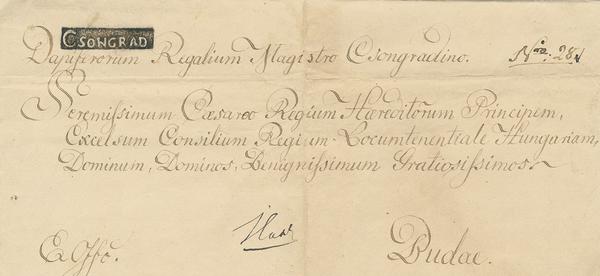 CSONGRAD
Dapiferorum Regalium Magistro Csongradino.
Nro. 28
Serenissimum Cæsareo Regium Hæreditorum Principem,
Excelsum Consilium Regium Locumtenentiale Hungariam,
Dominum, Dominos, Benignissimum Gratiosissimos
Ex Offo.
Budae.